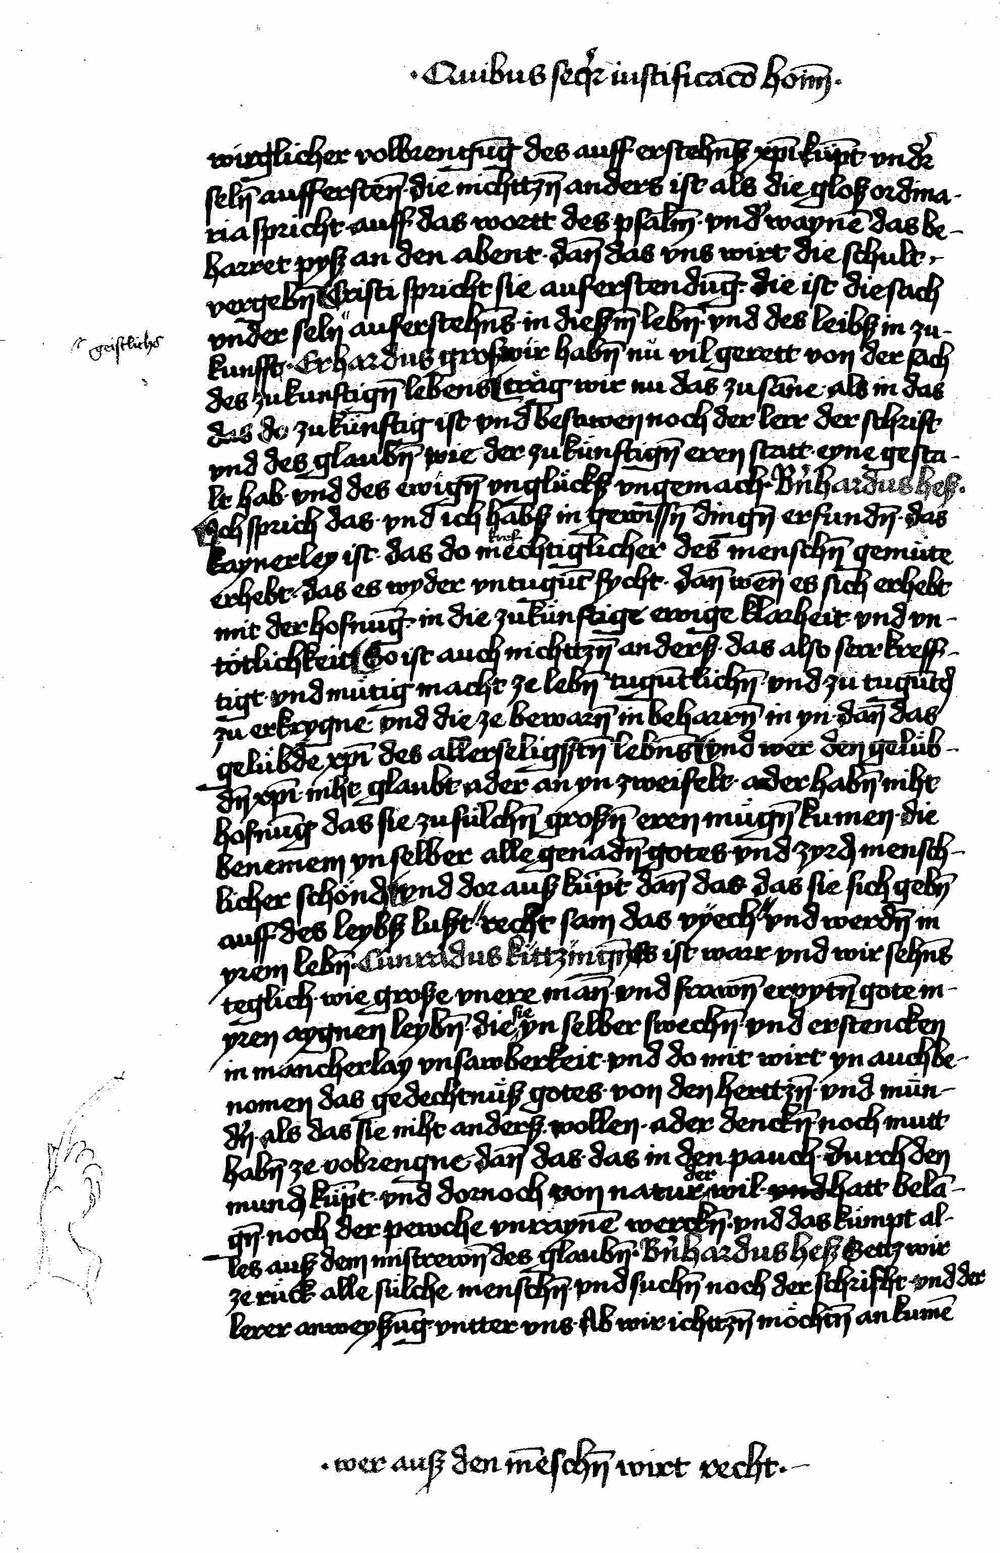 · Quibus seqr̄ iustificacō hoīm̄ ·
wirglicher volbrengūg des auff erstehnß xp̄i kūpt vnd'
seln̄ aufferstēn · die nichttzn̄ anders ist als die gloß ordina-
ria spricht · auff das wortt des psalm̄ · vnd' waynē das be-
harret pyß an den abent · dan̄ das vns wirt die schult
vergebn̄ Cristi spricht sie auferstendūg · die ist die sach
vnder seln̄ " auferstehns · in dießm̄ lebn̄ vnd des leibß in zu-
geistlichs
kunfft · Erhardus groß wir habn̄ nū vil gerett von der sach
des zukunftign̄ lebens trag wir nu das zusāne · als in das
das do zukünftig ist · vnd bestiwen noch der lerr der schrift
vnd des glaubn̄ wie der zukünftign̄ eren statt · eyne gesta-
lt hab · vnd des ewign̄ vnglückß vngemach · Bn̄hardus heß ·
Ich sprich das · vnd ich habß in gewissn̄ dingn̄ erfundn̄ · das
kaynerley ist · das do kref mechtiglicher des menschn̄ gemüte
erhebt · das es wyder vntugūt fycht · dan̄ wen̄ es sich erhebt
mit der hofnūg · in die zukünftige ewige klarheit · vnd vn-
tötlichkeit So ist auch nichttzn̄ anderß · das also serr kreff-
tigt · vnd mütig macht ze lebn̄ tugūtlichn̄ · vnd zu tugūtn̄
zu erkrygne · vnd die ze bewarn̄ in beharrn̄ in yn · dan̄ das
gelübde xp̄i des allerseligstn̄ lebn̄s vnd wer den gelüb-
dn̄ xp̄i · niht glaubt · ader an yn zweifelt · ader habn̄ niht
hofnūg das sie zu sülchn̄ großn̄ eren mügn̄ kumen · die
benemem yn selber alle genadn̄ gotes · vnd zyrd mensch-
licher schönd vnd dor auß küpt dan̄ das das sie sich gebn̄
auff des leybß lußt " recht sam das vÿech " vnd werdn̄ in
yrem lebn̄ · Cunradus kittzingn̄ Es ist warr vnd wir sehns
teglich · wie große vnere man̄ · vnd frawn̄ erpytn̄ gote in-
yren aygnen leybn̄ · die sie yn selber swechn̄ · vnd erstencken
in mancherlay vnsawberkeit · vnd do mit wirt yn auch be-
nomen das gedechtnüß gotes · von den herttzn̄ · vnd mün-
dn̄ · als das sie niht anderß wollen · ader denckn̄ noch mutt
habn̄ ze vobrengne dan̄ das · das in den pauch · durch den
mund küpt · vnd dornoch von natur der wil · vnd hatt belā-
gn̄ · noch der pewche vnraynē werckn̄ · vnd das kümpt al-
les auß dem mistrewn̄ des glaubn̄ · Bn̄hardus heß Settz wir
ze rück alle sülche menschn̄ · vnd suchn̄ noch der schrifht · vnd der
lerer anweyßūg · vntter vns · Ab wir ichttzn̄ möchtn̄ an kumē
· wer auß den mēschn̄ wirt recht · -